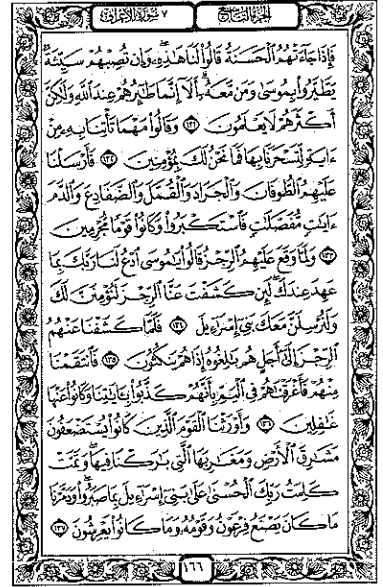 ٧ سُورَةُ الأَعْرَافِ
الجُزْءُ التَّاسِعُ
فَإِذَا جَآءَتْهُمُ ٱلْحَسَنَةُ قَالُوا۟ لَنَا هَـٰذِهِۦ وَإِن تُصِبْهُمْ سَيِّئَةٌ
يَطَّيَّرُوا۟ بِمُوسَىٰ وَمَن مَّعَهُۥٓ أَلَآ إِنَّمَا طَـٰٓئِرُهُمْ عِندَ ٱللَّهِ وَلَـٰكِنَّ
أَكْثَرَهُمْ لَا يَعْلَمُونَ ١٣١ وَقَالُوا۟ مَهْمَا تَأْتِنَا بِهِۦ مِنْ
ءَايَةٍ لِّتَسْحَرَنَا بِهَا فَمَا نَحْنُ لَكَ بِمُؤْمِنِينَ ١٣٢ فَأَرْسَلْنَا
عَلَيْهِمُ ٱلطُّوفَانَ وَٱلْجَرَادَ وَٱلْقُمَّلَ وَٱلضَّفَادِعَ وَٱلدَّمَ
ءَايَـٰتٍ مُّفَصَّلَـٰتٍ فَٱسْتَكْبَرُوا۟ وَكَانُوا۟ قَوْمًا مُّجْرِمِينَ
١٣٣ وَلَمَّا وَقَعَ عَلَيْهِمُ ٱلرِّجْزُ قَالُوا۟ يَـٰمُوسَى ٱدْعُ لَنَا رَبَّكَ بِمَا
عَهِدَ عِندَكَ لَئِن كَشَفْتَ عَنَّا ٱلرِّجْزَ لَنُؤْمِنَنَّ لَكَ
وَلَنُرْسِلَنَّ مَعَكَ بَنِىٓ إِسْرَٰٓءِيلَ ١٣٤ فَلَمَّا كَشَفْنَا عَنْهُمُ
ٱلرِّجْزَ إِلَىٰٓ أَجَلٍ هُم بَـٰلِغُوهُ إِذَا هُمْ يَنكُثُونَ ١٣٥ فَٱنتَقَمْنَا
مِنْهُمْ فَأَغْرَقْنَـٰهُمْ فِى ٱلْيَمِّ بِأَنَّهُمْ كَذَّبُوا۟ بِـَٔايَـٰتِنَا وَكَانُوا۟ عَنْهَا
غَـٰفِلِينَ ١٣٦ وَأَوْرَثْنَا ٱلْقَوْمَ ٱلَّذِينَ كَانُوا۟ يُسْتَضْعَفُونَ
مَشَـٰرِقَ ٱلْأَرْضِ وَمَغَـٰرِبَهَا ٱلَّتِى بَـٰرَكْنَا فِيهَا وَتَمَّتْ
كَلِمَتُ رَبِّكَ ٱلْحُسْنَىٰ عَلَىٰ بَنِىٓ إِسْرَٰٓءِيلَ بِمَا صَبَرُوا۟ وَدَمَّرْنَا
مَا كَانَ يَصْنَعُ فِرْعَوْنُ وَقَوْمُهُۥ وَمَا كَانُوا۟ يَعْرِشُونَ ١٣٧
١٦٦